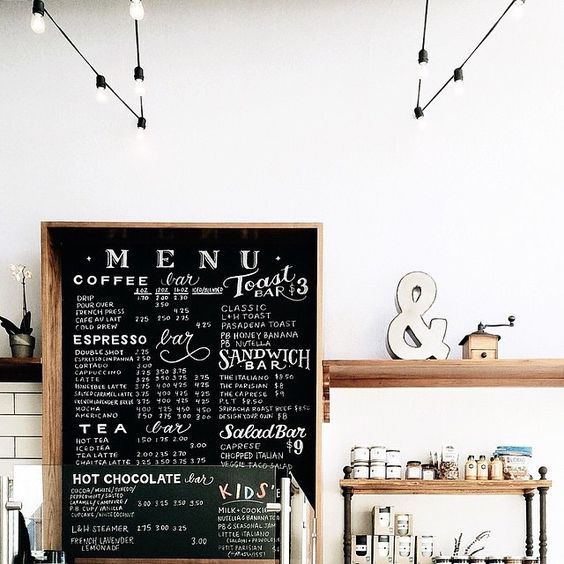 · MENU ·
COFFEE bar
8 OZ 12 OZ 16 OZ ICED/BLENDED
DRIP 1.70 2.00 2.30
POUR OVER 3.50
FRENCH PRESS 4.25
CAFE AU LAIT 2.25 2.50 2.75
COLD BREW 4.25
ESPRESSO bar
DOUBLE SHOT 2.25
ESPRESSO CON PANNA 2.50
CORTADO 3.00
CAPPUCCINO 3.25 3.50 3.75
LATTE 3.25 3.50 3.75
HONEYBEE LATTE 3.75 4.00 4.25
SALTED CARAMEL LATTE 3.75 4.00 4.25
FRENCH LAVENDER LATTE
MOCHA 4.00 4.25 4.50
AMERICANO 2.50 2.75 3.00
TEA bar
HOT TEA 1.50 1.75 2.00
ICED TEA
TEA LATTE
CHAI TEA LATTE 3.25 3.50 3.75
HOT CHOCOLATE bar
COCOA/WHITE/
PEPPERMINT/SALTED
CARAMEL/CAMPFIRE/ 3.00 3.25 3.50
P.B CUP/VANILLA
CUPCAKE/WHITE COCONUT
L&H STEAMER 2.75 3.00 3.25
FRENCH LAVENDER 3.00
LEMONADE
Toast
BAR $3
CLASSIC
L&H TOAST
PASADENA TOAST
PB HONEY BANANA
PB NUTELLA
SANDWICH
BAR
THE ITALIANO $9.50
THE PARISIAN $8
THE CAPRESE $9
P.L.T $8.50
SRIRACHA ROAST BEEF
DESIGN YOUR OWN $8
Salad BAR
$9
CAPRESE
CHOPPED ITALIAN
VEGGIE TACO SALAD
KIDS'
MILK + COOKIE
NUTELLA & BANANA
PB & SEASONAL JAM
LITTLE ITALIAN
PETIT PARISIAN
&